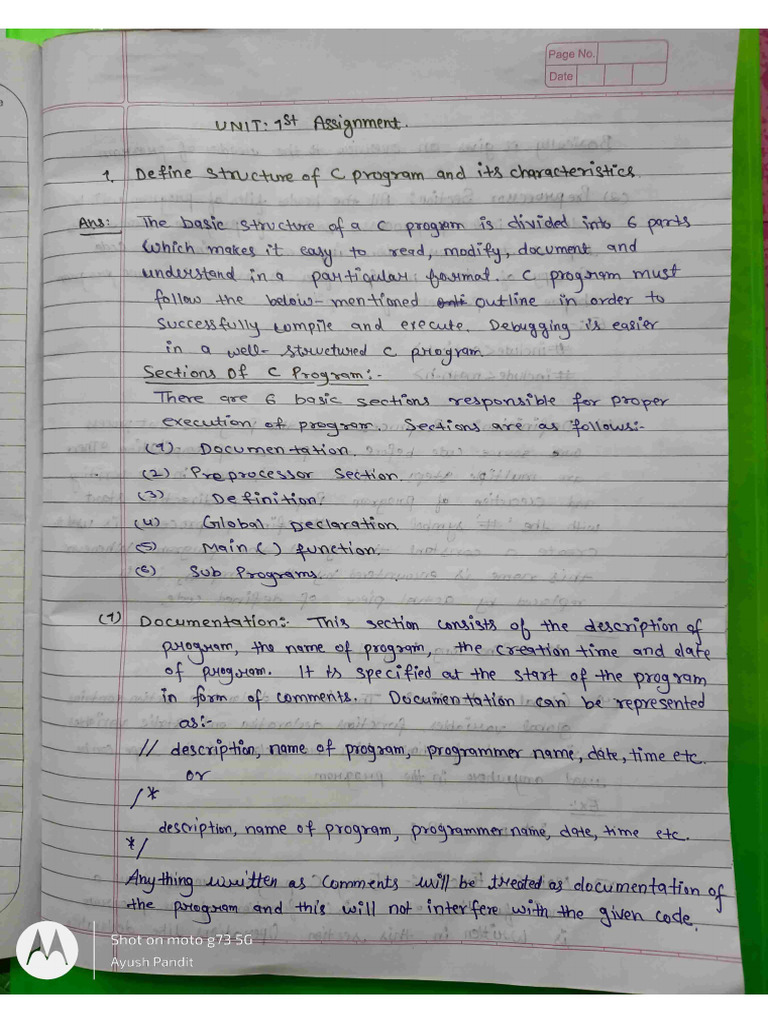 Page No.
Date
UNIT: 1st Assignment.
1. Define structure of C program and its characteristics.
Ans: The basic structure of a C program is divided into 6 parts
which makes it easy to read, modify, document and
understand in a particular format. C program must
follow the below-mentioned outline in order to
successfully compile and execute. Debugging is easier
in a well-structured C program.
Sections Of C Program:-
There are 6 basic sections responsible for proper
execution of program. Sections are as follows:-
(1) Documentation.
(2) Preprocessor Section.
(3) Definition.
(4) Global Declaration
(5) Main() function.
(6) Sub Programs.
(1) Documentation:- This section consists of the description of
program, the name of program, the creation time and date
of program. It is specified at the start of the program
in form of comments. Documentation can be represented
as:-
// description, name of program, programmer name, date, time etc.
or
/*
description, name of program, programmer name, date, time etc.
*/
Anything written as comments will be treated as documentation of
the program and this will not interfere with the given code.
Shot on moto g73 5G
Ayush Pandit